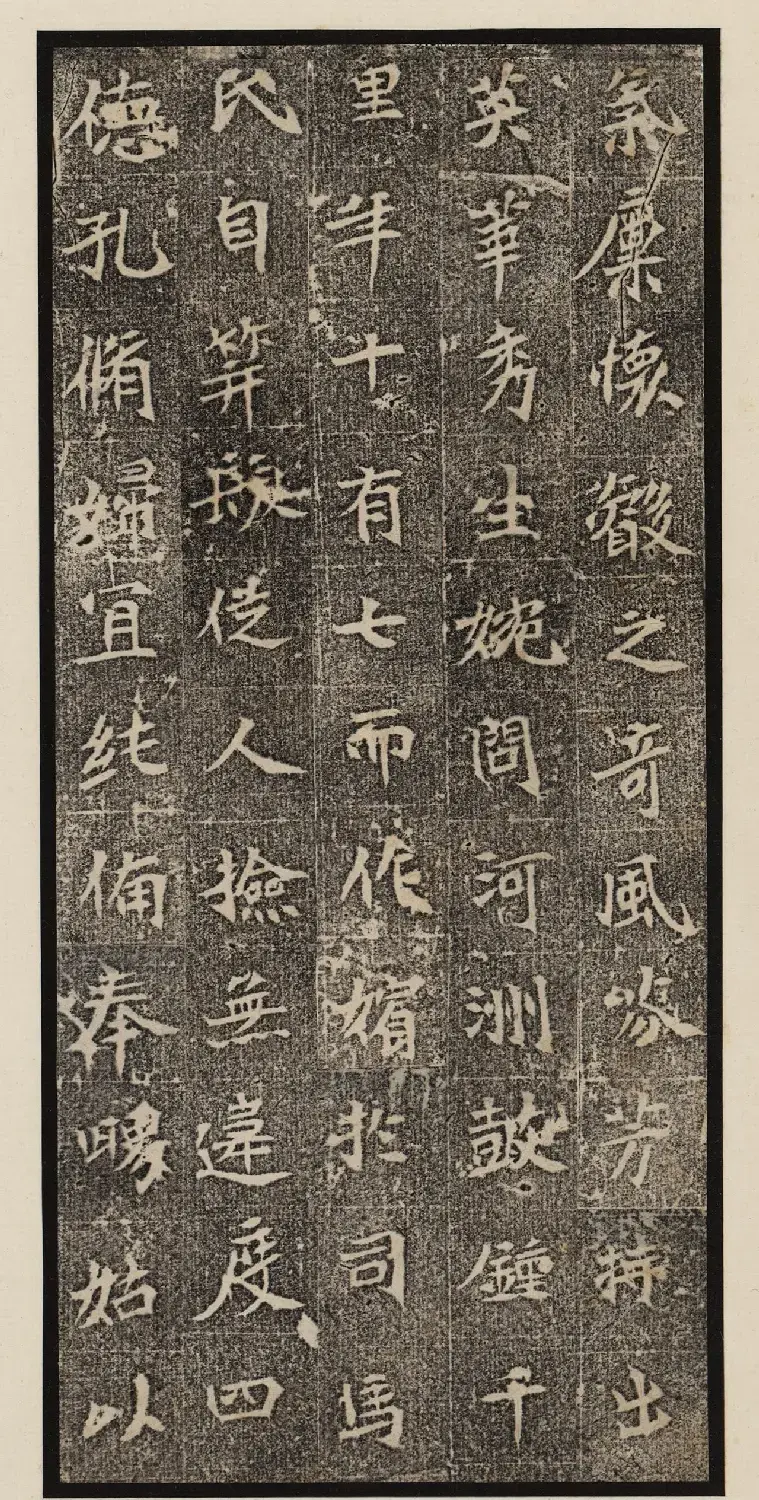 氣稟懷叡之奇風芬芳特出
英華秀生婉問河洲鼓鍾千
里年十有七而作嬪於司馬
氏自笄髮從人撿無違度四
德孔脩婦宜純備奉舅姑以